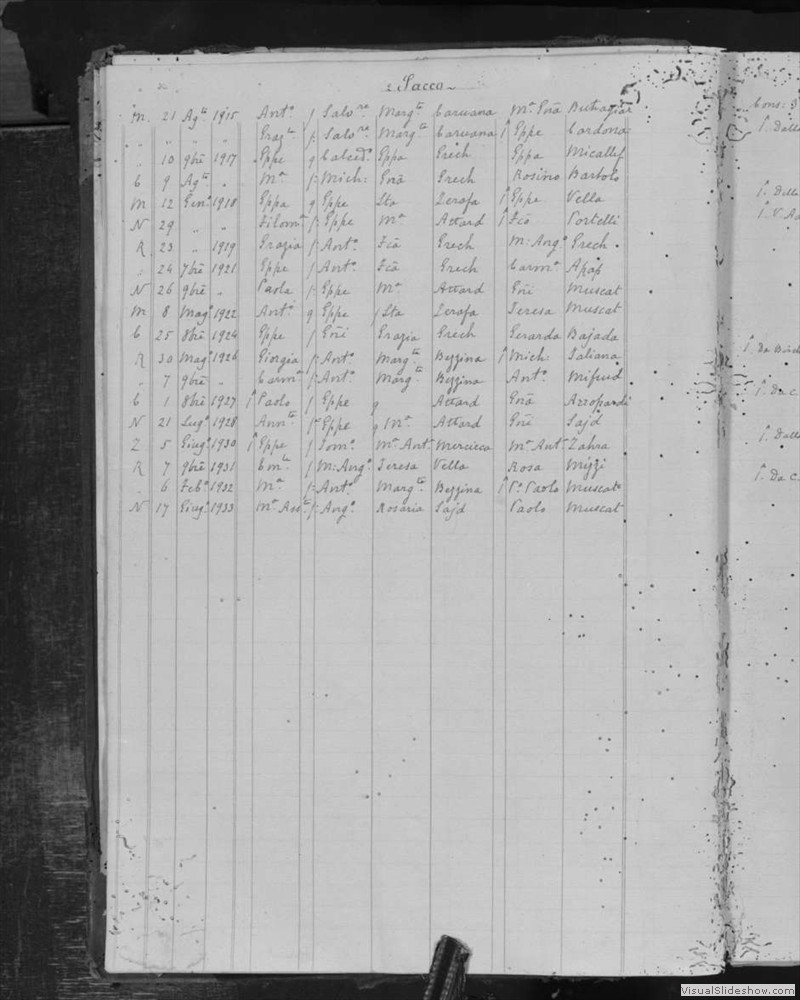 Sacco
M. 21 Ag.to 1915 Ant.o f. Salv.re Marg.ta Caruana M.a Gnã Buttagiar
" " " " Graz.a f. Salv.re Marg.ta Caruana f Gppe Cardona
" 10 9bre 1917 Gppe q Calced.o Gppa Grech Gppa Micallef
C 9 Ag.to " M.a f. Mich: Gnã Grech Rosino Bartolo
M 12 Gen.o 1918 Gppa q Gppe Sta Zerafa f Gppe Vella
N 29 " " Filom.a f. Gppe M.a Attard f Fcõ Portelli
R. 23 " 1919 Grazia f. Ant.o Fcã Grech M: Ang.a Grech
" 24 7bre 1921 Gppe f Ant.o Fcã Grech Carm.a Apap
N 26 9bre " Paola f. Gppe M.a Attard Gñi Muscat
M 8 Mag.o 1922 Ant.o q Gppe f Sta Zerafa Teresa Muscat
C 25 8bre 1924 Gppe f Gñi Grazia Grech Gerarda Bajada
R 30 Mag.o 1926 Giorgia f. Ant.o Marg.ta Bezzina f Mich: Saliana
" 7 9bre " Carm.a f. Ant.o Marg.ta Bezzina Ant.o Mifsud
C 1 8bre 1927 f Paolo f Gppe q Attard Gnã Azzopardi
N 21 Lug.o 1928 f. Gppe q M.a Attard Gñi Sajd
Z 5 Giug.o 1930 f Gppe f Tom.o M.a Ant. Mercieca M.a Ant. Zahra
R 7 9bre 1931 f M: Ang.o Teresa Vella Rosa Mizzi
" 6 Feb.o 1932 M.a f. Ant.o Marg.ta Bezzina f Paolo Muscat
N 17 Giug.o 1933 M.a Ass.ta f. Ang.o Rosaria Sajd Paolo Muscat
Cons:
f. Dalle
f. Delle
f. V.
f. Da
f. Da C.
f. Dalle
f. Da C.
VisualSlideshow.com